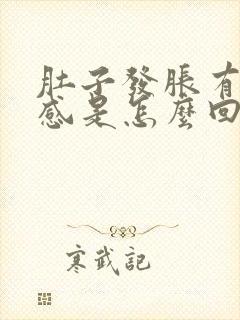 肚子發脹有
感是怎麼回
寒武記